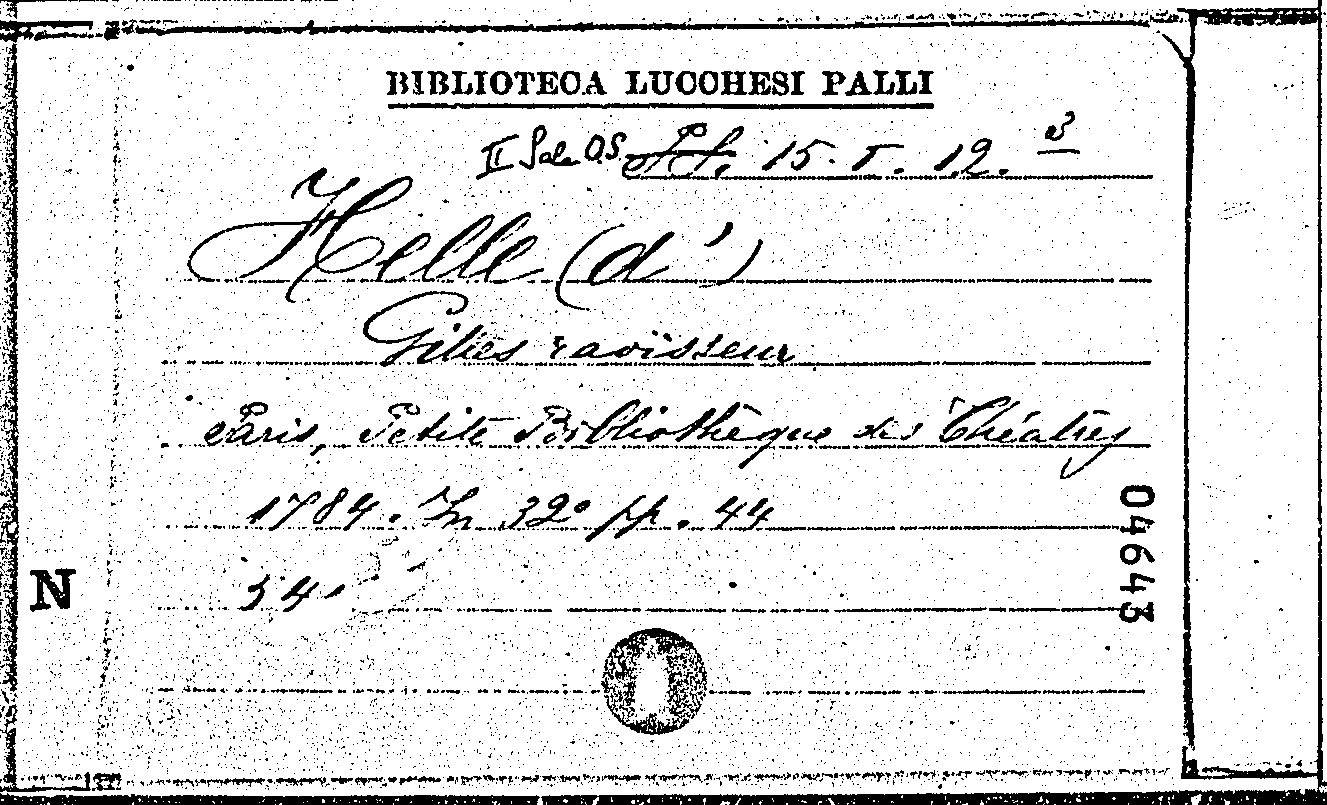 BIBLIOTECA LUCCHESI PALLI
II Sala O.S. 15. V. 12. 3
Helle (d')
Gilles ravisseur
Paris, Petite Bibliothèque des Théatres
1784. In 32° pp. 44
54.
N
04643